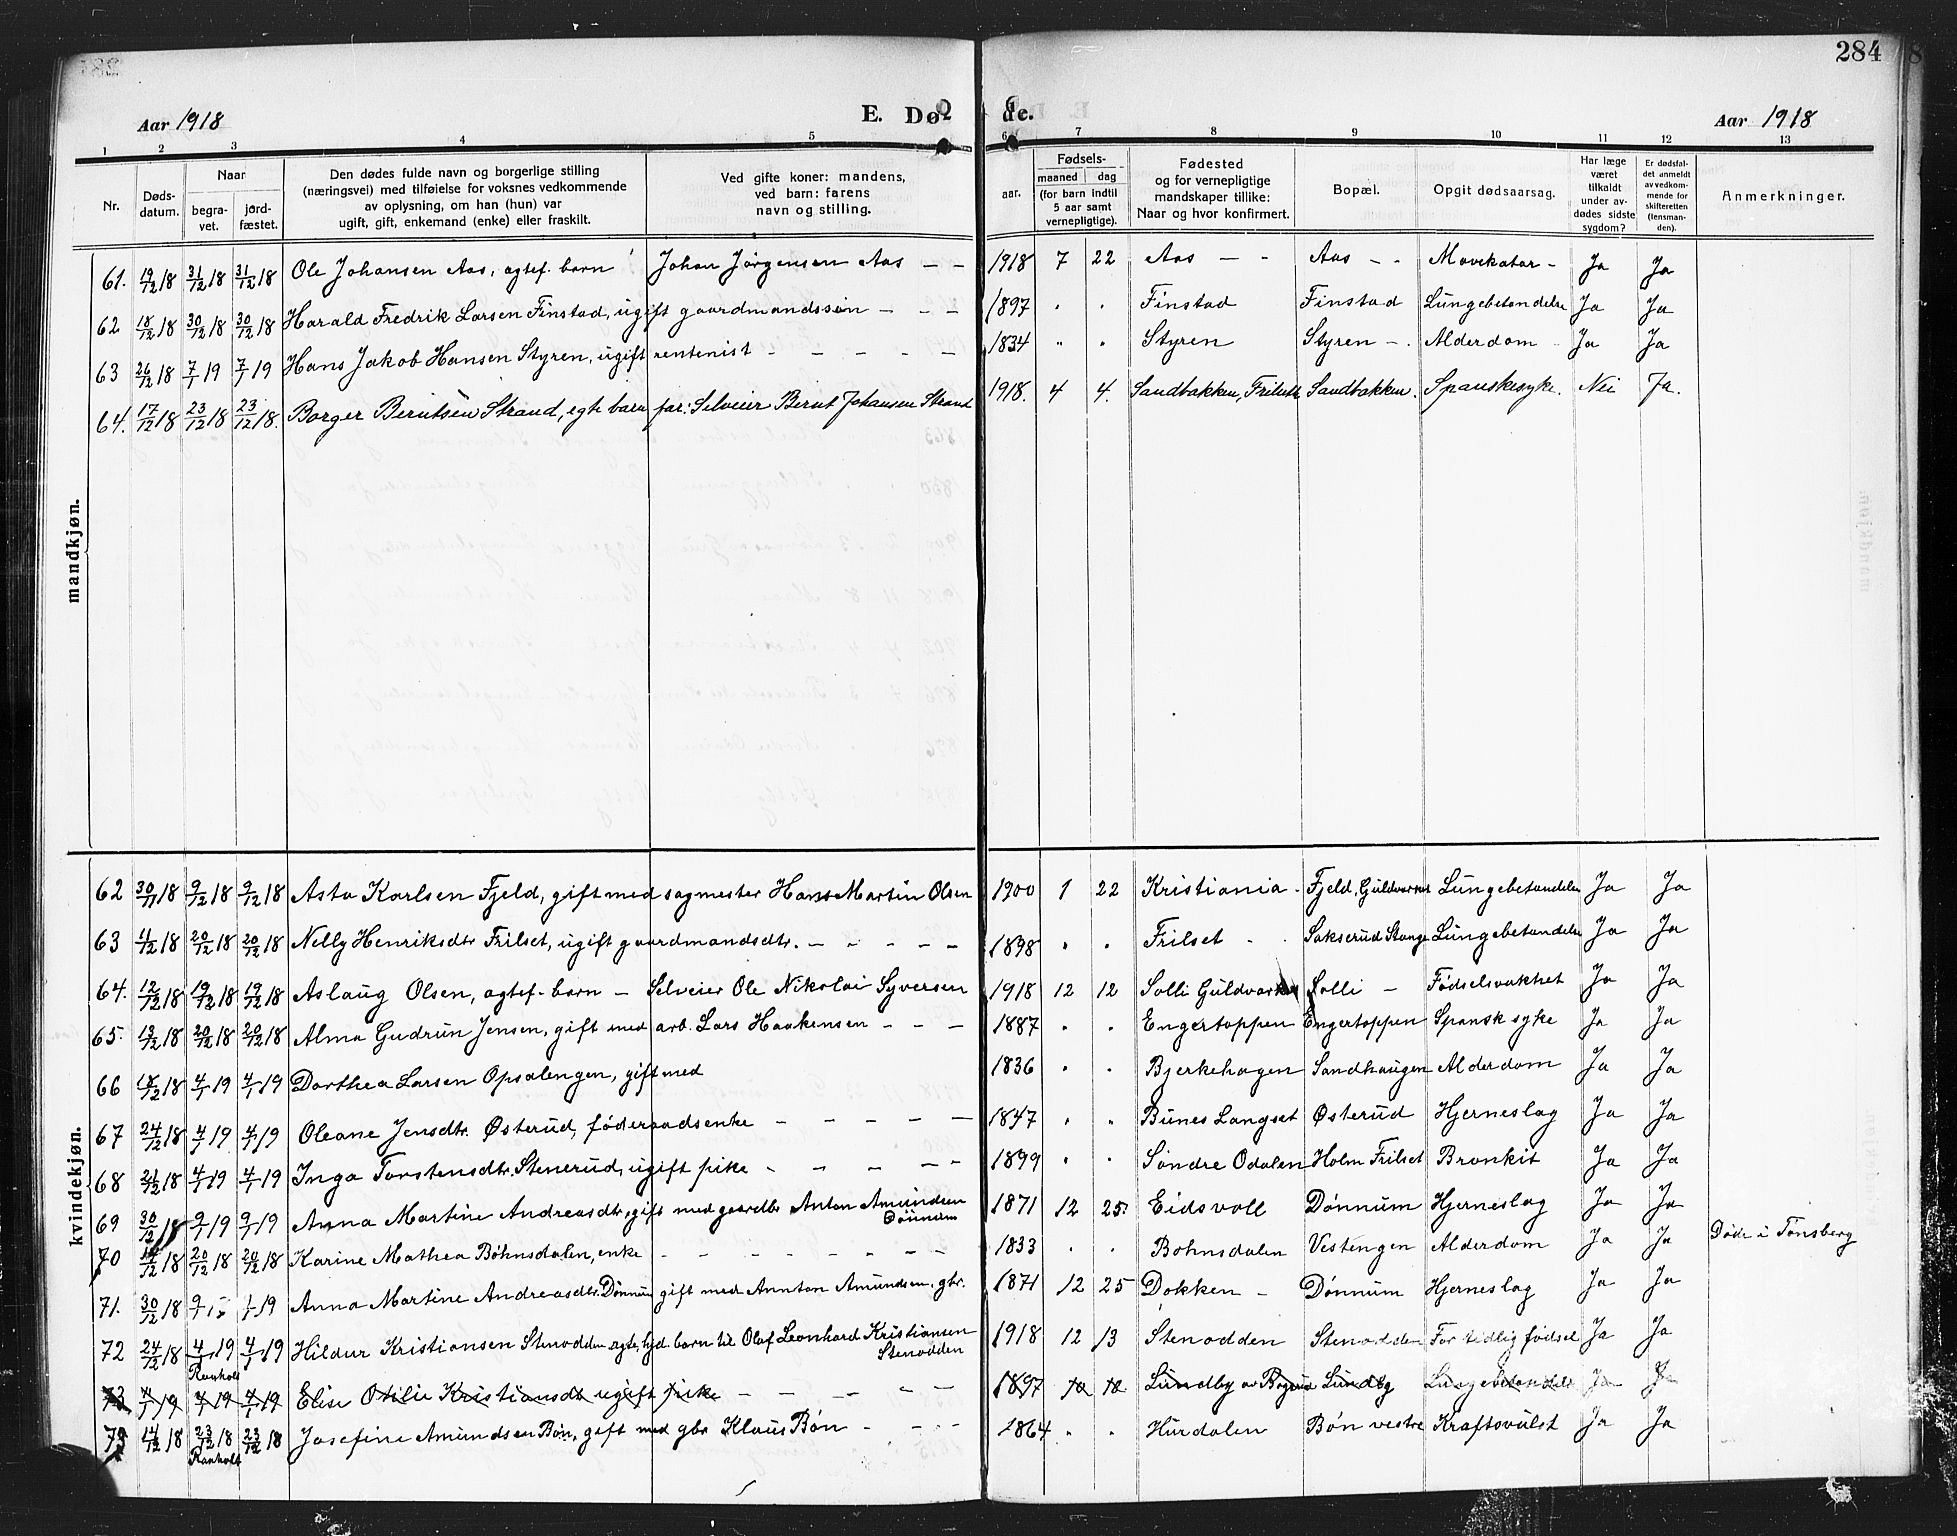 284
Aar 1918 E. Dø de. Aar 1918
1 2 3 4 5 6 7 8 9 10 11 12 13
Nr. Døds-datum. Naar begra-vet. jord-fæstet. Den dødes fulde navn og borgerlige stilling (næringsvei) med tilføielse for voksnes vedkommende av oplysning, om han (hun) var ugift, gift, enkemand (enke) eller fraskilt. Ved gifte koner: mandens, ved barn: farens navn og stilling. Fødsels- aar. maaned dag (for barn indtil 5 aar samt vernepligtige). Fødested og for vernepligtige mandskaper tillike: Naar og hvor konfirmert. Bopæl. Opgit dødsaarsag. Har læge været tilkaldt under av-dødes sidste sygdom? Er dødsfal-det anmeldt av vedkom-mende for skifteretten (lensman-den). Anmerkninger.
mandkjøn.
61. 19/12 18 31/12 18 31/12 18 Ole Johansen Aas, egtef. barn Johan Jørgensen Aas — — 1918 7 22 Aas — - Aas - - Mavekatar - Ja Ja
62 18/12 18 30/12 18 30/12 18 Harald Fredrik Larsen Finstad, ugift gaardmandssøn — — — 1897 " " Finstad Finstad Lungebetendelse Ja Ja
63 26/12 18 7/1 19 7/1 19 Hans Jakob Hansen Styren, ugift rentenist — — — — — 1834 " " Styren Styren — . Alderdom Ja Ja
64. 17/12 18 23/12 18 23/12 18. Borger Berntsen Strand, egte barn far: Selveier Bernt Johansen Strand 1918. 4 4. Sandbakken, Frilset Sandbakken. Spanskesyke. Nei Ja.
kvindekjøn.
62 30/11 18 9/12 18 9/12 18 Asta Karlsen Fjeld, gift med sagmester Hans Martin Olsen 1900 1 22 Kristiania - Fjeld, Guldverket Lungebetendelse Ja Ja
63 11/12 18 20/12 18 20/12 18 Nelly Henriksdtr. Frilset, ugift gaardmandsdtr. — — — — — 1898 " " Frilset - Sakserud Stange Lungebetendelse Ja Ja
64. 12/12 18 19/12 18 19/12 18 Aslaug Olsen, egtef. barn — Selveier Ole Nikolai Syversen 1918 12 12 Solli Guldverket Solli — Fødselsvakhet Ja Ja
65. 13/12 18 20/12 18 20/12 18 Alma Gudrun Jensen, gift med arb. Lars Haakensen — — — 1887 " " Engertoppen Engertoppen Spansk syke Ja Ja
66 18 4/1 19 4/1 19 Dorthea Larsen Opsalengen, gift med 1836 " " Bjerkehagen Sandhaugen Alderdom Ja Ja
67 24/12 18 4/1 19 4/1 19 Oleane Jensdtr. Østerud, føderaadsenke — — — — — 1847 " " Bunes Langset Østerud Hjerneslag Ja Ja
68 18 4/1 19 4/1 19 Inga Torstensdtr. Stenerud, ugift pike — — — — — 1899 " " Søndre Odalen Holm Frilset Bronkit Ja Ja
69 30/12 18 9/1 19 9/1 19 Anna Martine Andreasdtr., gift med gaardbr. Anton Amundsen Dønnum 1871 12 25. Eidsvoll Dønnum Hjerneslag Ja Ja
70 18 20/12 18 20/12 18 Karine Mathea Bøhnsdalen, enke — — — — — — — 1833 " " Bohnsdalen Vestengen Alderdom Ja Ja Døde i Tønsberg
71. 30/12 18 9/1 19 Anna Martine Andreasdtr. Dønnum gift med Annton Amundsen. gbr. 1871 12 25 Dokken — Dønnum Hjerneslag Ja Ja
72 24/12 18 4/1 19 4/1 19 Hildur Kristiansen Stenodden egte, barn til Olaf Leonhard Kristiansen Stenodden 1918 12 13 Stenodden Stenodden For tidlig fødsel Ja Ja
Ranholt
73 4/1 19 4/1 19 4/1 19 Elise Otilie Kristiansdt ugift pike — — — — — 1897 10 10 Lundby Lundby Lungebetendelse Ja Ja
73 18 23/12 18 23/12 18 Josefine Amundsen Bøn, gift med gbr Klaus Bøn — — — 1864 " " Hurdalen Bøn vestre Kraftsvulst Ja Ja
Ranholt